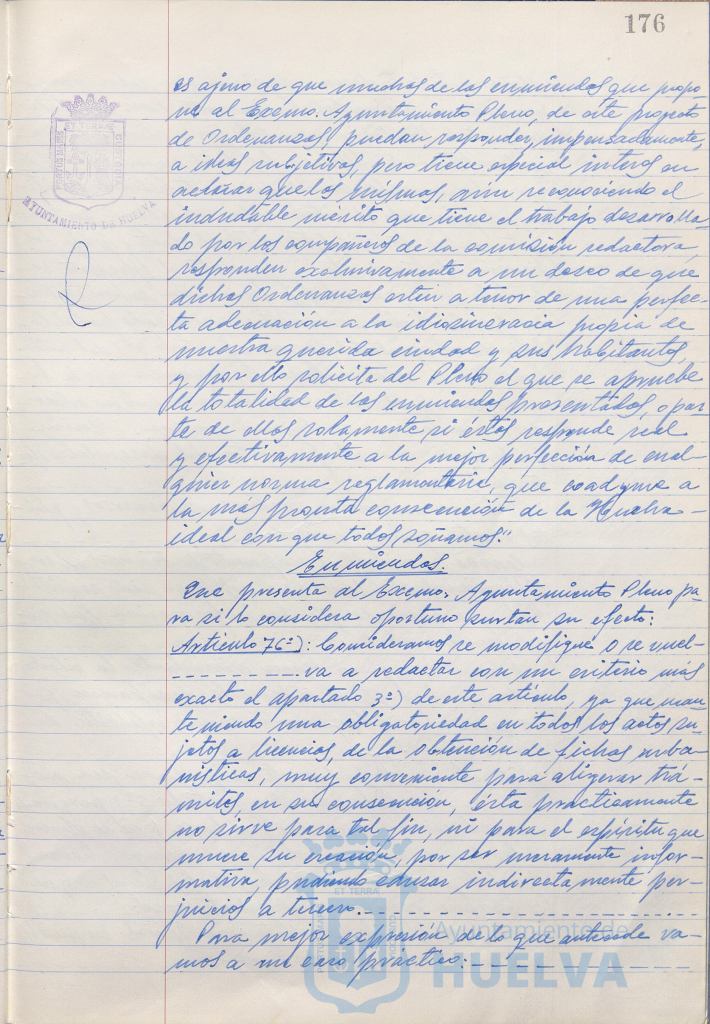 176
es ajeno de que muchas de las enmiendas que propo
ne al Excmo. Ayuntamiento Pleno, de este proyecto
de Ordenanzas, puedan responder, impensadamente,
a ideas subjetivas, pero tiene especial interes en
aclarar que las mismas, aún reconociendo el
indudable mérito que tiene el trabajo desarrolla-
do por los compañeros de la comisión redactora,
responden exclusivamente a un deseo de que
dichas Ordenanzas estén a tenor de una perfec-
ta adecuación a la idiosincracia propia de
nuestra querida ciudad y sus habitantes,
y por ello solicita del Pleno el que se apruebe
la totalidad de las enmiendas presentadas, o par
te de ellas solamente si éstas responde real
y efectivamente a la mejor perfección de cual
quier norma reglamentaria, que coadyuve a
la más pronta consecución de la Huelva -
ideal con que todos soñamos."
Enmiendas.
Que presenta al Excmo. Ayuntamiento Pleno pa
ra si lo considera oportuno surtan su efecto:
Artículo 76º): Consideramos se modifique o se vuel-
va a redactar con un criterio más
exacto el apartado 3º) de este artículo, ya que man
teniendo una obligatoriedad en todos los actos su-
jetos a licencias, de la obtención de fichas urba-
nísticas, muy conveniente para aligerar trá-
mites, en su consecución, ésta practicamente
no sirve para tal fin, ni para el espíritu que
mueve su creación, por ser meramente infor-
mativa, pudiendo causar indirectamente per-
juicios a tercero.
Para mejor expresión de lo que antecede va-
mos a un caso práctico:
AYUNTAMIENTO DE HUELVA
ET TERRA
ET TERRA
Ayuntamiento de
HUELVA